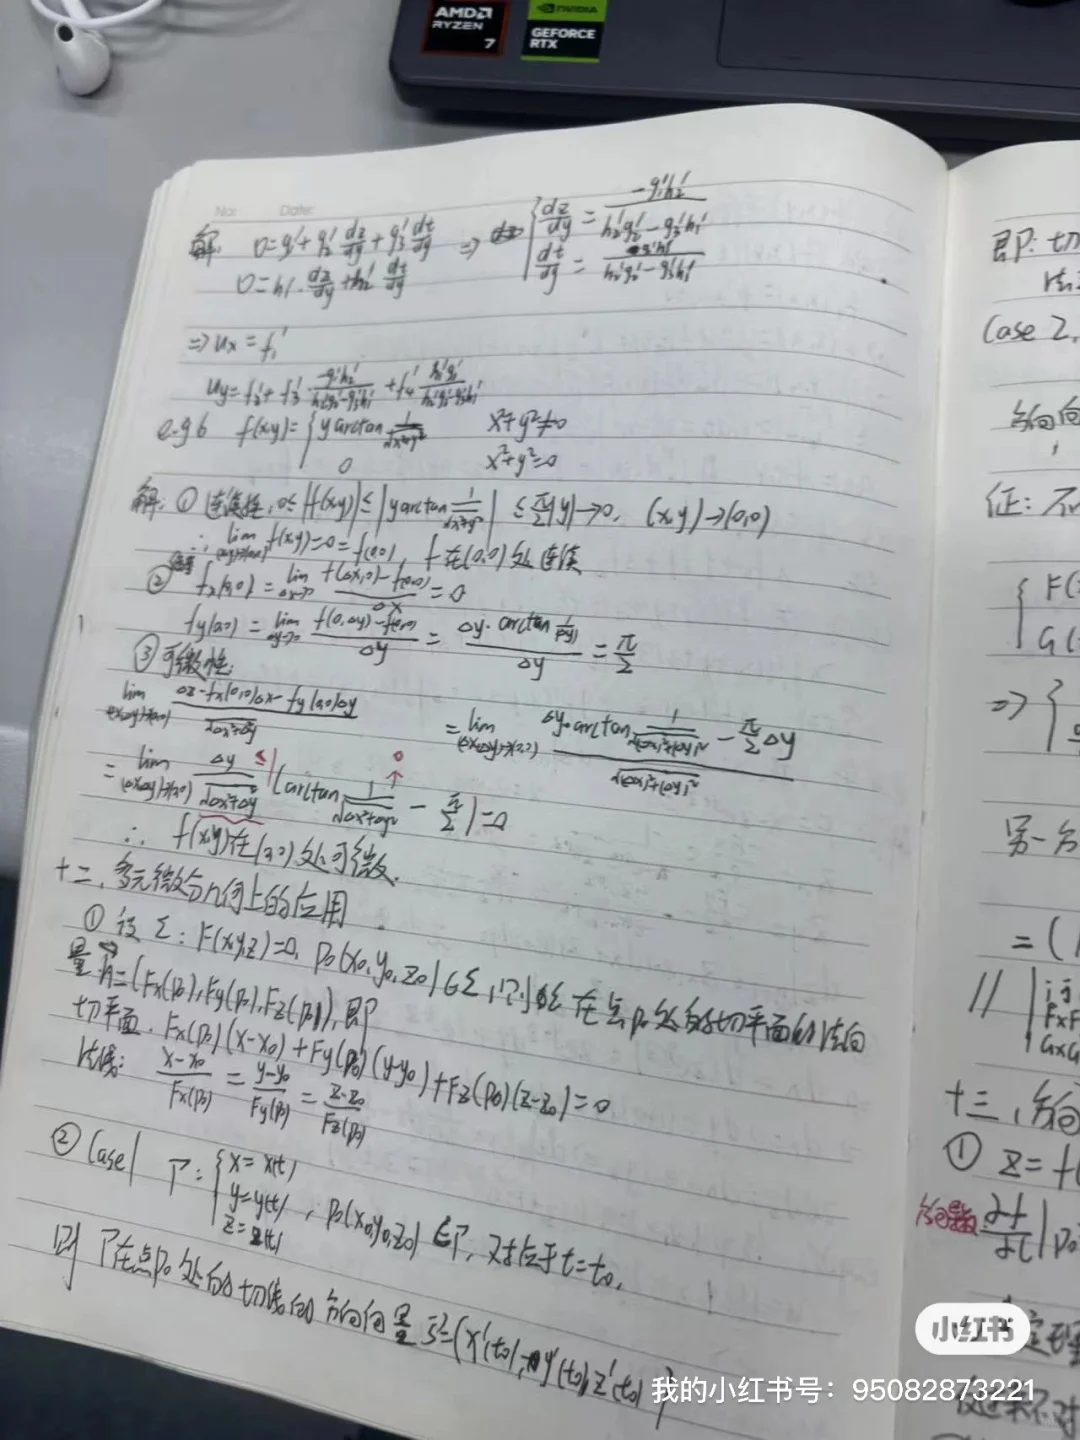 AMD
RYZEN
7
NVIDIA
GEFORCE
RTX
No: Date:
解: 0=g₁'+g₂' dz/dy+g₃' dt/dy ⇒ { dz/dy = -g₁'h₂'/(h₂'g₂'-g₃'h₁')
0=h₁'·dz/dy+h₂' dt/dy dt/dy = h₁'/(h₂'g₂'-g₃'h₁')
⇒ux=f₁'
uy=f₂'+f₃'·-g₁'h₂'/(h₂'g₂'-g₃'h₁')+f₄' h₁'g₁'/(h₂'g₂'-g₃'h₁')
e.g 6 f(x,y)={ y arctan 1/√(x²+y²) x²+y²≠0
0 x²+y²=0
解: ① 连续性, 0≤|f(x,y)|≤|y arctan 1/√(x²+y²)|≤π/2|y|→0, (x,y)→(0,0)
∴ lim(x,y)→(0,0) f(x,y)=0=f(0,0), f在(0,0)处连续
② fx(0,0)=lim Δx→0 (f(Δx,0)-f(0,0))/Δx=0
fy(0,0)=lim Δy→0 (f(0,Δy)-f(0,0))/Δy = (Δy·arctan 1/|Δy|)/Δy = π/2
③ 可微性:
lim(Δx,Δy)→(0,0) (Δz-fx(0,0)Δx-fy(0,0)Δy)/√(Δx²+Δy²) =lim(Δx,Δy)→(0,0) (Δy·arctan 1/√((Δx)²+(Δy)²) - π/2 Δy)/√((Δx)²+(Δy)²)
=lim(Δx,Δy)→(0,0) Δy/√(Δx²+Δy²) ≤1 (arctan 1/√(Δx²+Δy²) →0 - π/2)=0
∴ f(x,y)在(0,0)处可微.
十二、多元微分几何上的应用
① 设Σ: F(x,y,z)=0, P₀(x₀,y₀,z₀)∈Σ, 则Σ在点P₀处的切平面的法向
量n=(Fx(P₀),Fy(P₀),Fz(P₀)),即
切平面. Fx(P₀)(x-x₀)+Fy(P₀)(y-y₀)+Fz(P₀)(z-z₀)=0
法线: (x-x₀)/Fx(P₀) = (y-y₀)/Fy(P₀) = (z-z₀)/Fz(P₀)
② Case1 Γ: { x=x(t)
y=y(t) , P₀(x₀,y₀,z₀)∈Γ, 对应于t=t₀,
z=z(t)
则Γ在点P₀处的切线的方向向量 s=(x'(t₀),y'(t₀),z'(t₀))
即: 切
法
Case 2,
方向向
证: 不
{ F(
G(
⇒{
另一方
=(
// | i j
FxF
GxG
十三、方向
① z=f(
方向导数 ∂f/∂l|P₀
小红书
我的小红书号：95082873221